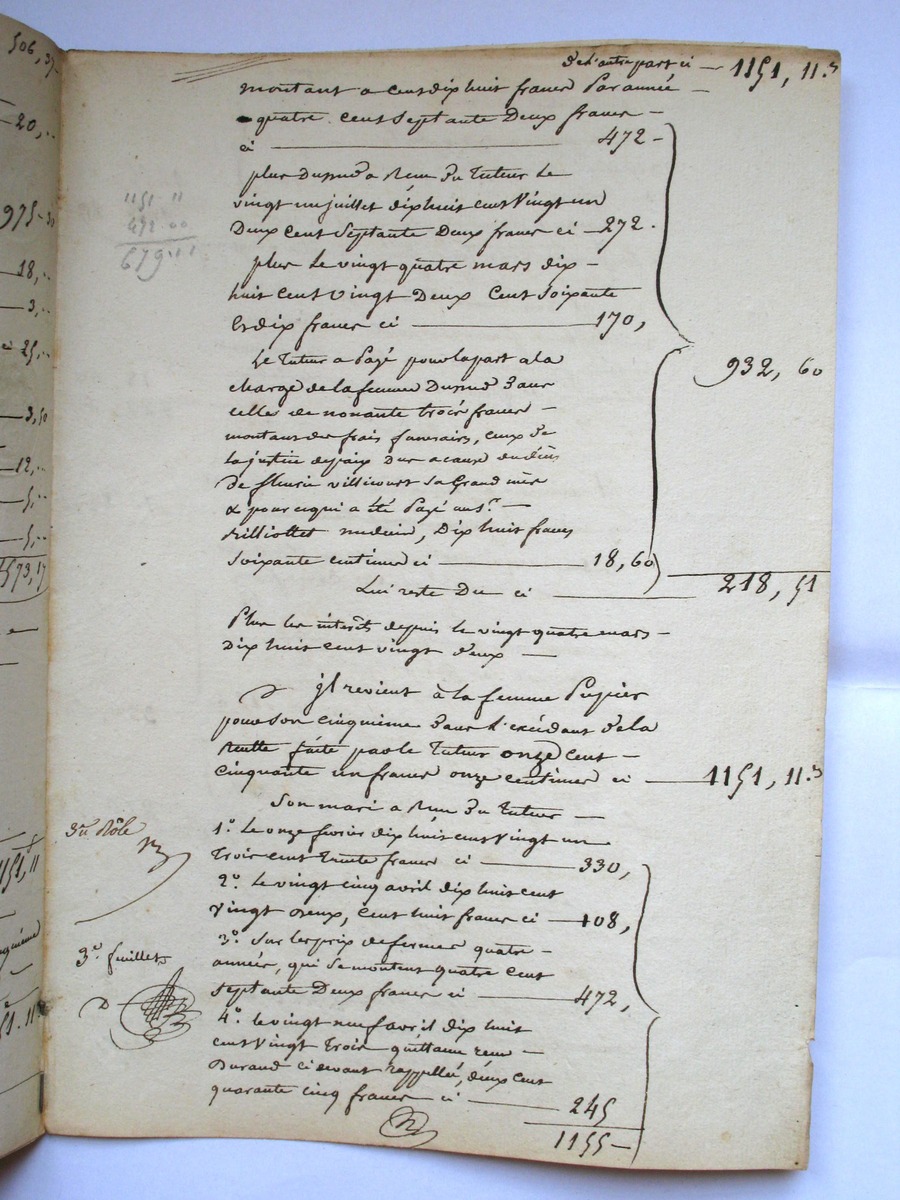 506, 37
20, ..
975-30
18, ..
3, ..
25, ..
3, 50
12, ..
5, ..
5, ..
1573, 17
1151, 11
De l'autre part ci — 1151, 11.s
montant a cent dix huit francs Par année —
quatre cent septante Deux francs —
ci — 472 —
plus Durand a Reçu Du Tuteur Le
vingt un juillet dix huit cent Vingt un
Deux cent Septante Deux francs ci — 272.
plus Le vingt quatre mars dix —
huit cent vingt Deux Cent Soixante
Et dix francs ci — 170,
Le Tuteur a Payé pour la part a la
charge de la femme Durand Dans
celle de nonante trois francs —
montant des frais funeraires, ceux de
la justice de paix Dus a cause du décès
De fleurie villicourt Sa Grand mère
& pour ce qui a été Payé au Sr —
Billiottet medecin, Dix huit francs
Soixante centimes ci — 18, 60
932, 60
Lui reste Du ci — 218, 51
Plus les interêts depuis le vingt quatre mars —
Dix huit cent vingt deux —
1151 11
472.00
679.11
jl revient à la femme Pupier
pour Son cinquieme Dans l'excédant de la
Recette faite par le Tuteur onze cent —
cinquante un francs onze centimes ci — 1151, 11.s
Son mari a Reçu Du Tuteur —
1.o Le onze fevrier dix huit cent Vingt un
Trois cent Trente francs ci — 330,
2.o Le vingt cinq avril dix huit cent
vingt Deux, Cent huit francs ci — 108,
3.o Sur les prix de fermes quatre —
années, qui Se montent quatre cent
septante Deux francs ci — 472,
4.o Le vingt neuf avril dix huit
cent Vingt Trois quittance reçu —
Durand ci devant rappellée, deux cent
quarante cinq francs ci — 245
1155 —
3me Rôle
3.e feuillet